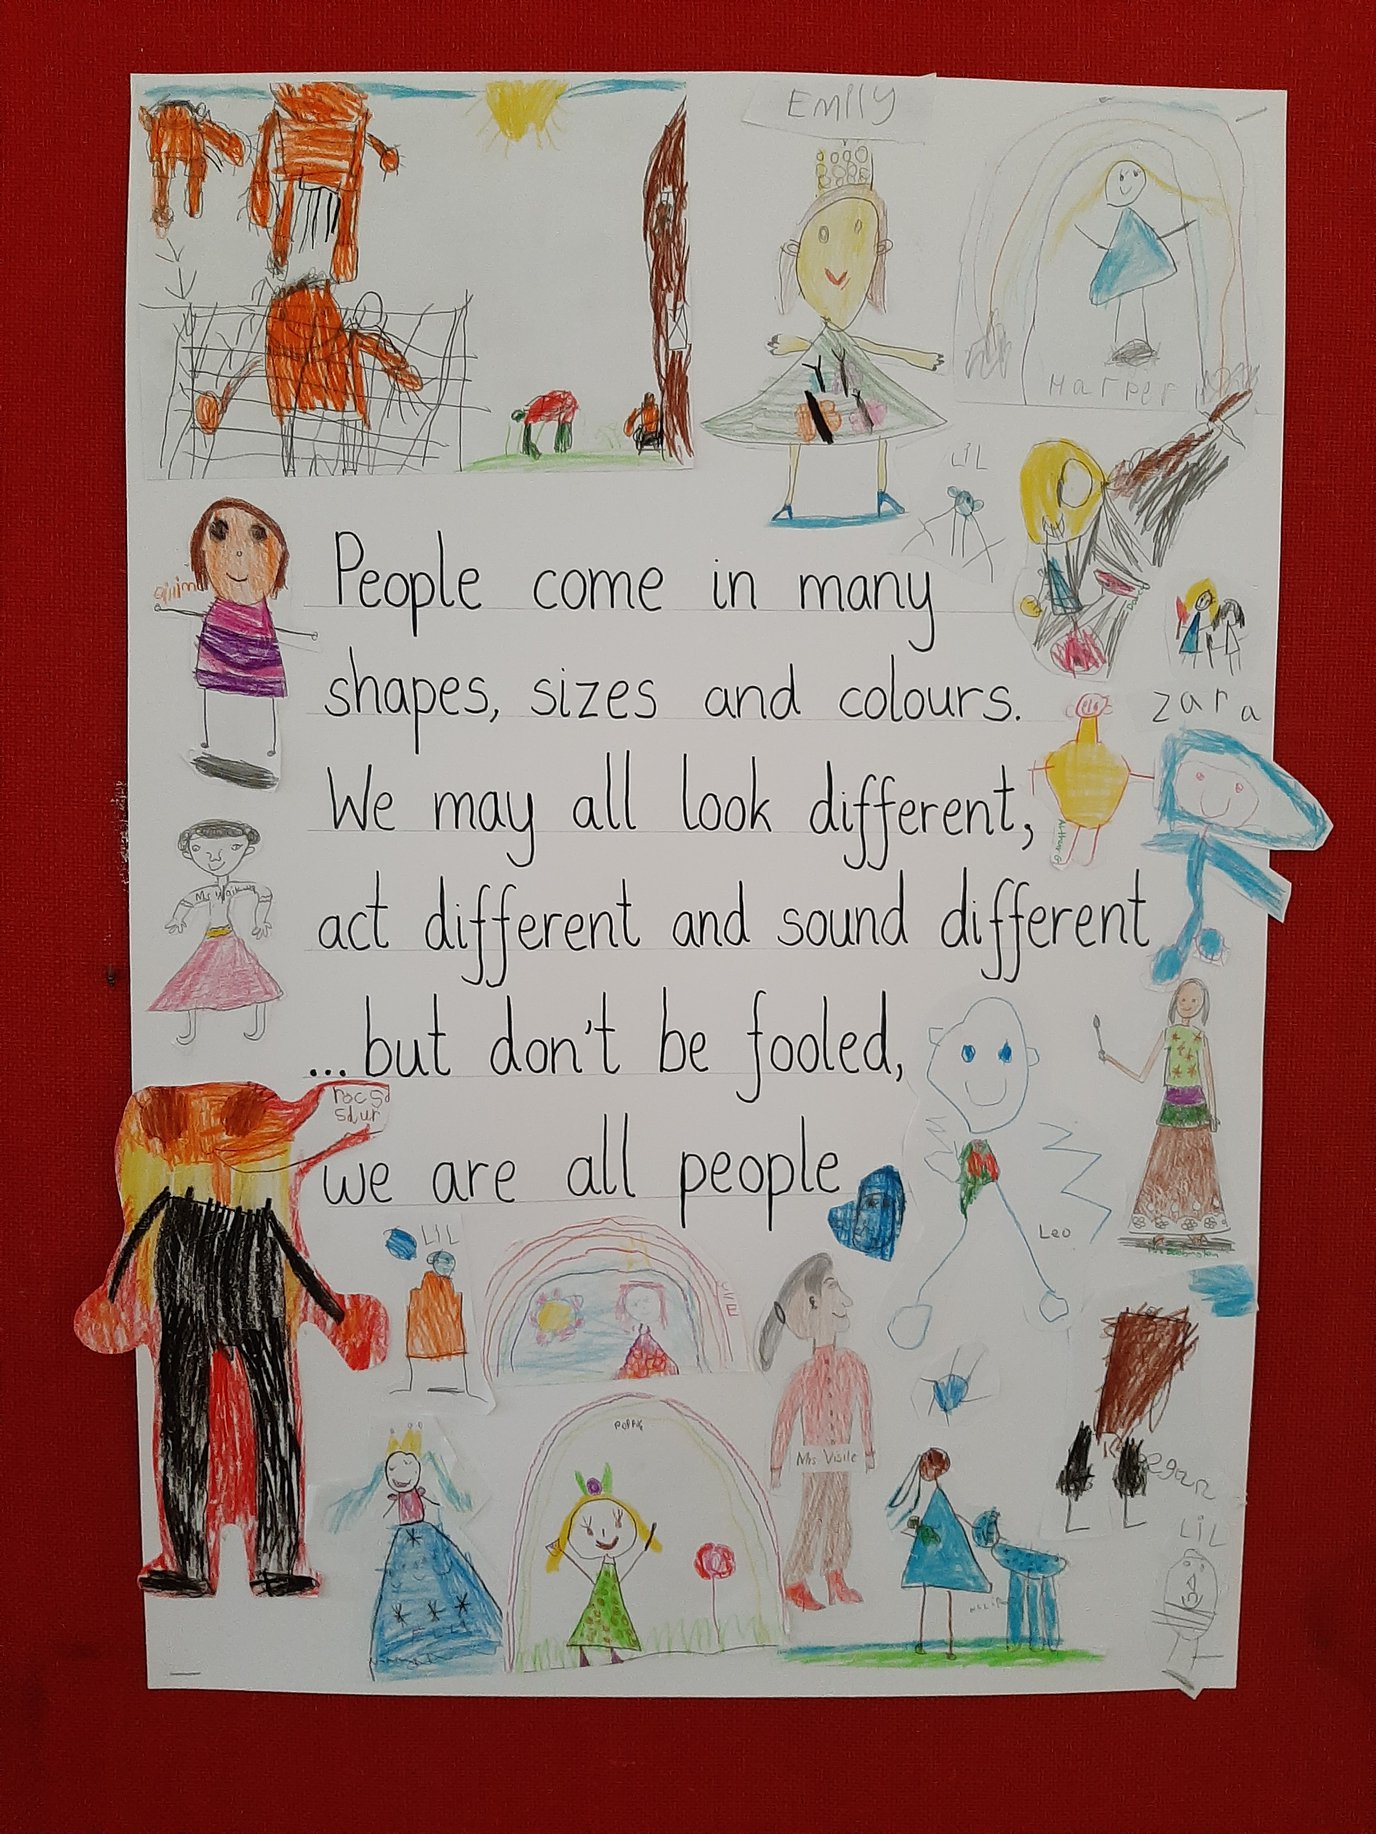 EMILY
Harper
LIL
People come in many
shapes, sizes and colours.
zara
We may all look different,
act different and sound different
...but don't be fooled,
we are all people
Leo
LIL
Mrs Visile
LiL